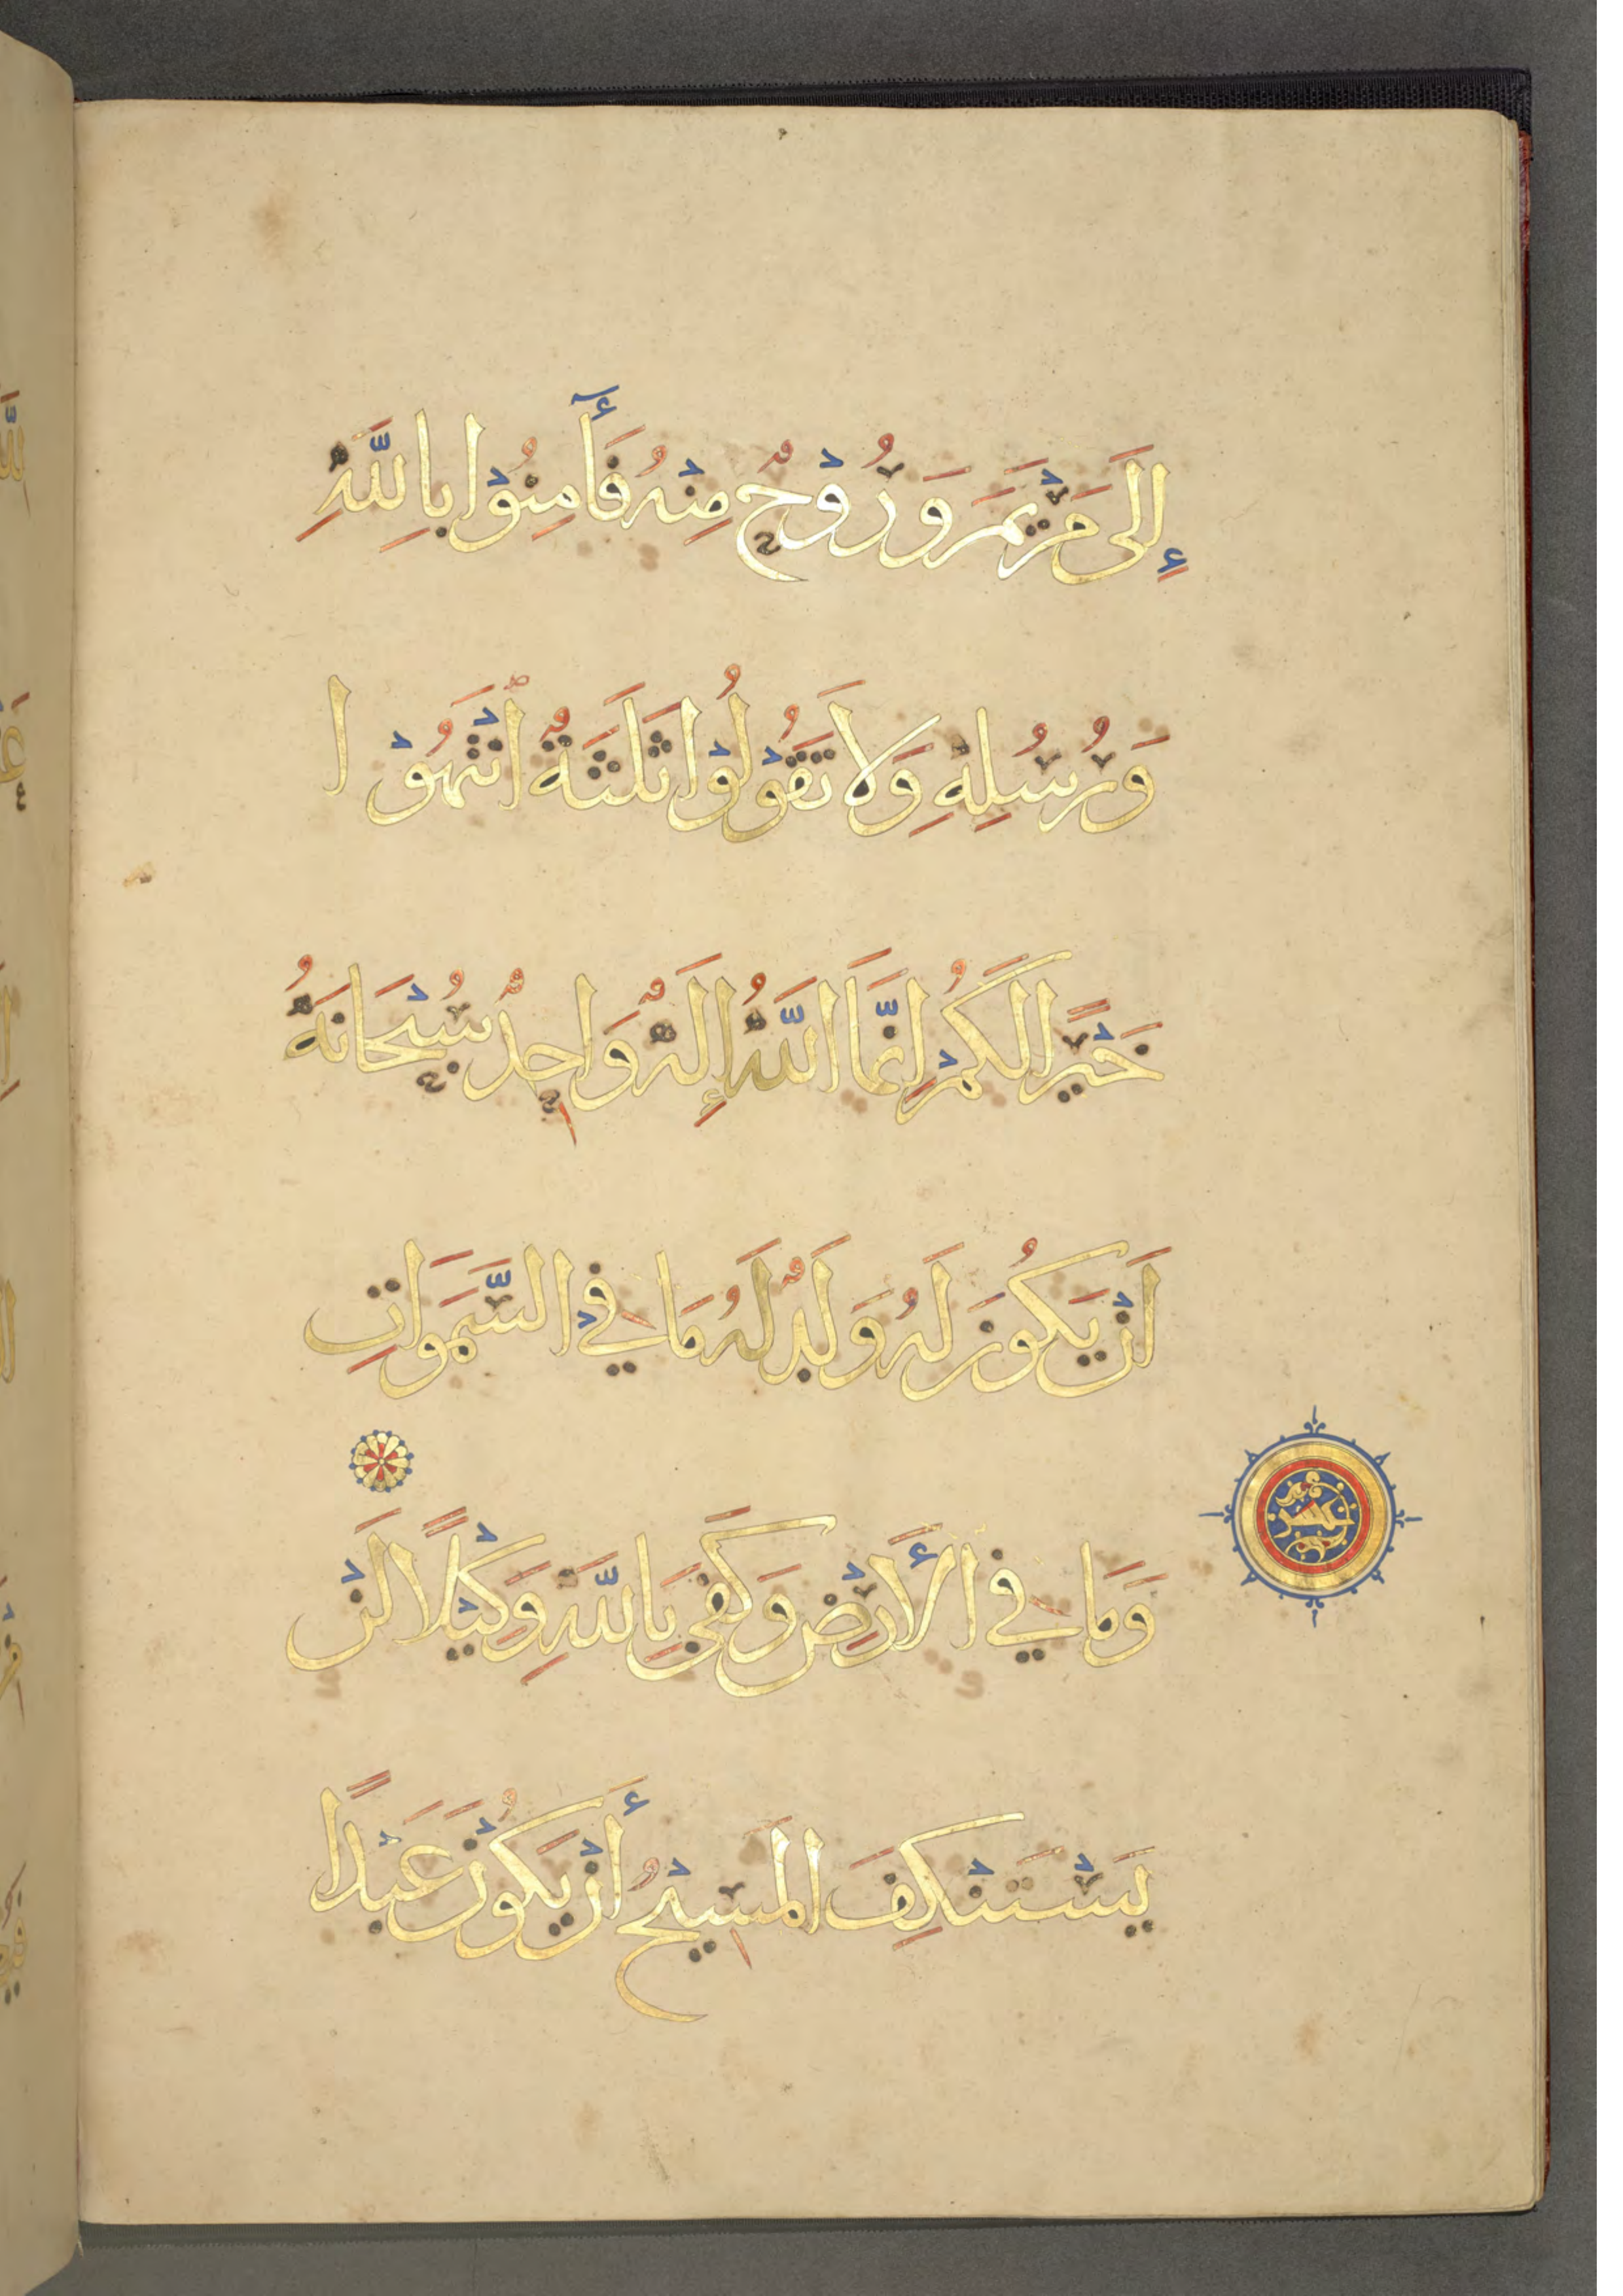 إِلَىٰ مَرْيَمَ وَرُوْحٌ مِنْهُ فَأٓمِنُوْا بِاللَّهِ
وَرُسُلِهِ وَلَا تَقُوْلُوْا ثَلَثَةٌ انْتَهُوْا
خَيْرًا لَكُمْ اِنَّمَا اللَّهُ إِلَهٌ وَاحِدٌ سُبْحَانَهُ
اَنْ يَكُونَ لَهُ وَلَدٌ لَهُ مَا فِي السَّمَوَاتِ
وَمَا فِي الْأَرْضِ وَكَفَى بِاللَّهِ وَكِيْلًا لَنْ
يَسْتَنْكِفَ الْمَسِيْحُ أَنْ يَكُوْنَ عَبْدًا